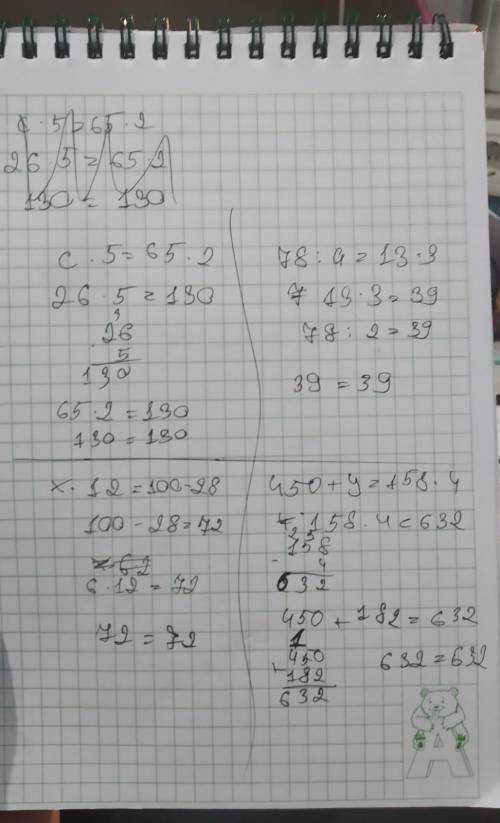 c · 5 = 65 · 2
26 · 5 = 65 · 2
130 = 130
c · 5 = 65 · 2
26 · 5 = 130
3
26
5
130
65 · 2 = 130
130 = 130
78 : a = 13 · 3
13 · 3 = 39
78 : 2 = 39
39 = 39
x · 12 = 100 - 28
100 - 28 = 72
6 · 12 = 72
72 = 72
450 + y = 158 · 4
158 · 4 = 632
2 3
158
4
632
450 + 182 = 632
1
450
+ 182
632
632 = 632
A